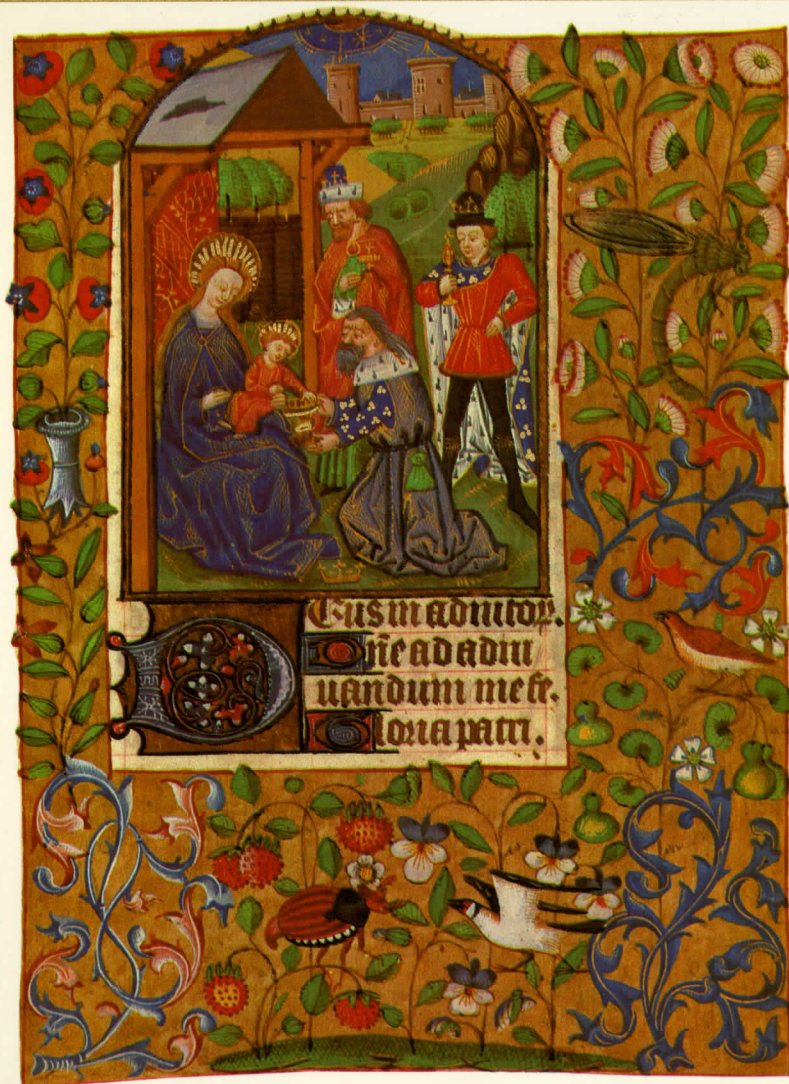 DEus in adiutor.
Dñe ad adiu
uandum me fe.
Gloria patri.